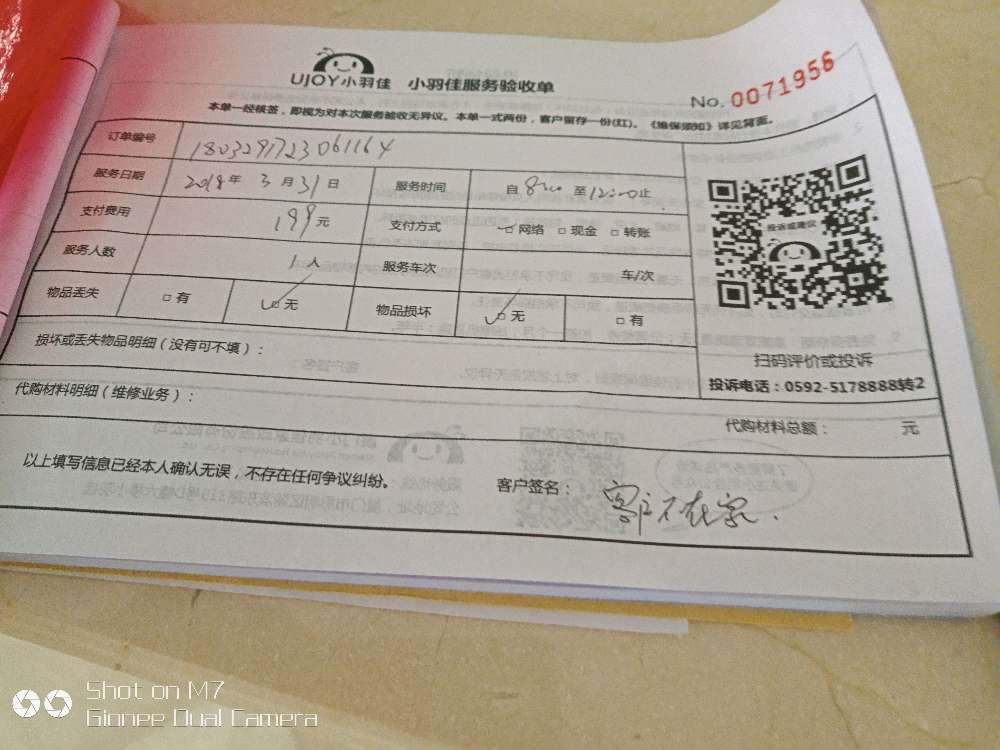 UJOY小羽佳 小羽佳服务验收单
No. 0071956
本单一经核签，即视为对本次服务验收无异议。本单一式两份，客户留存一份(红)。《维保须知》详见背面。
订单编号 1803291723061164
服务日期 2018年 3月31日 服务时间 自 8:00 至 12:00止
支付费用 199元 支付方式 □网络 □现金 □转账
服务人数 1人 服务车次 车/次
物品丢失 □有 □无 物品损坏 □无 □有
投诉或建议
扫码评价或投诉
投诉电话：0592-5178888转2
损坏或丢失物品明细（没有可不填）：
代购材料明细（维修业务）：
代购材料总额： 元
以上填写信息已经本人确认无误，不存在任何争议纠纷。
客户签名： 客户不在家.
Shot on M7
Gionee Dual Camera